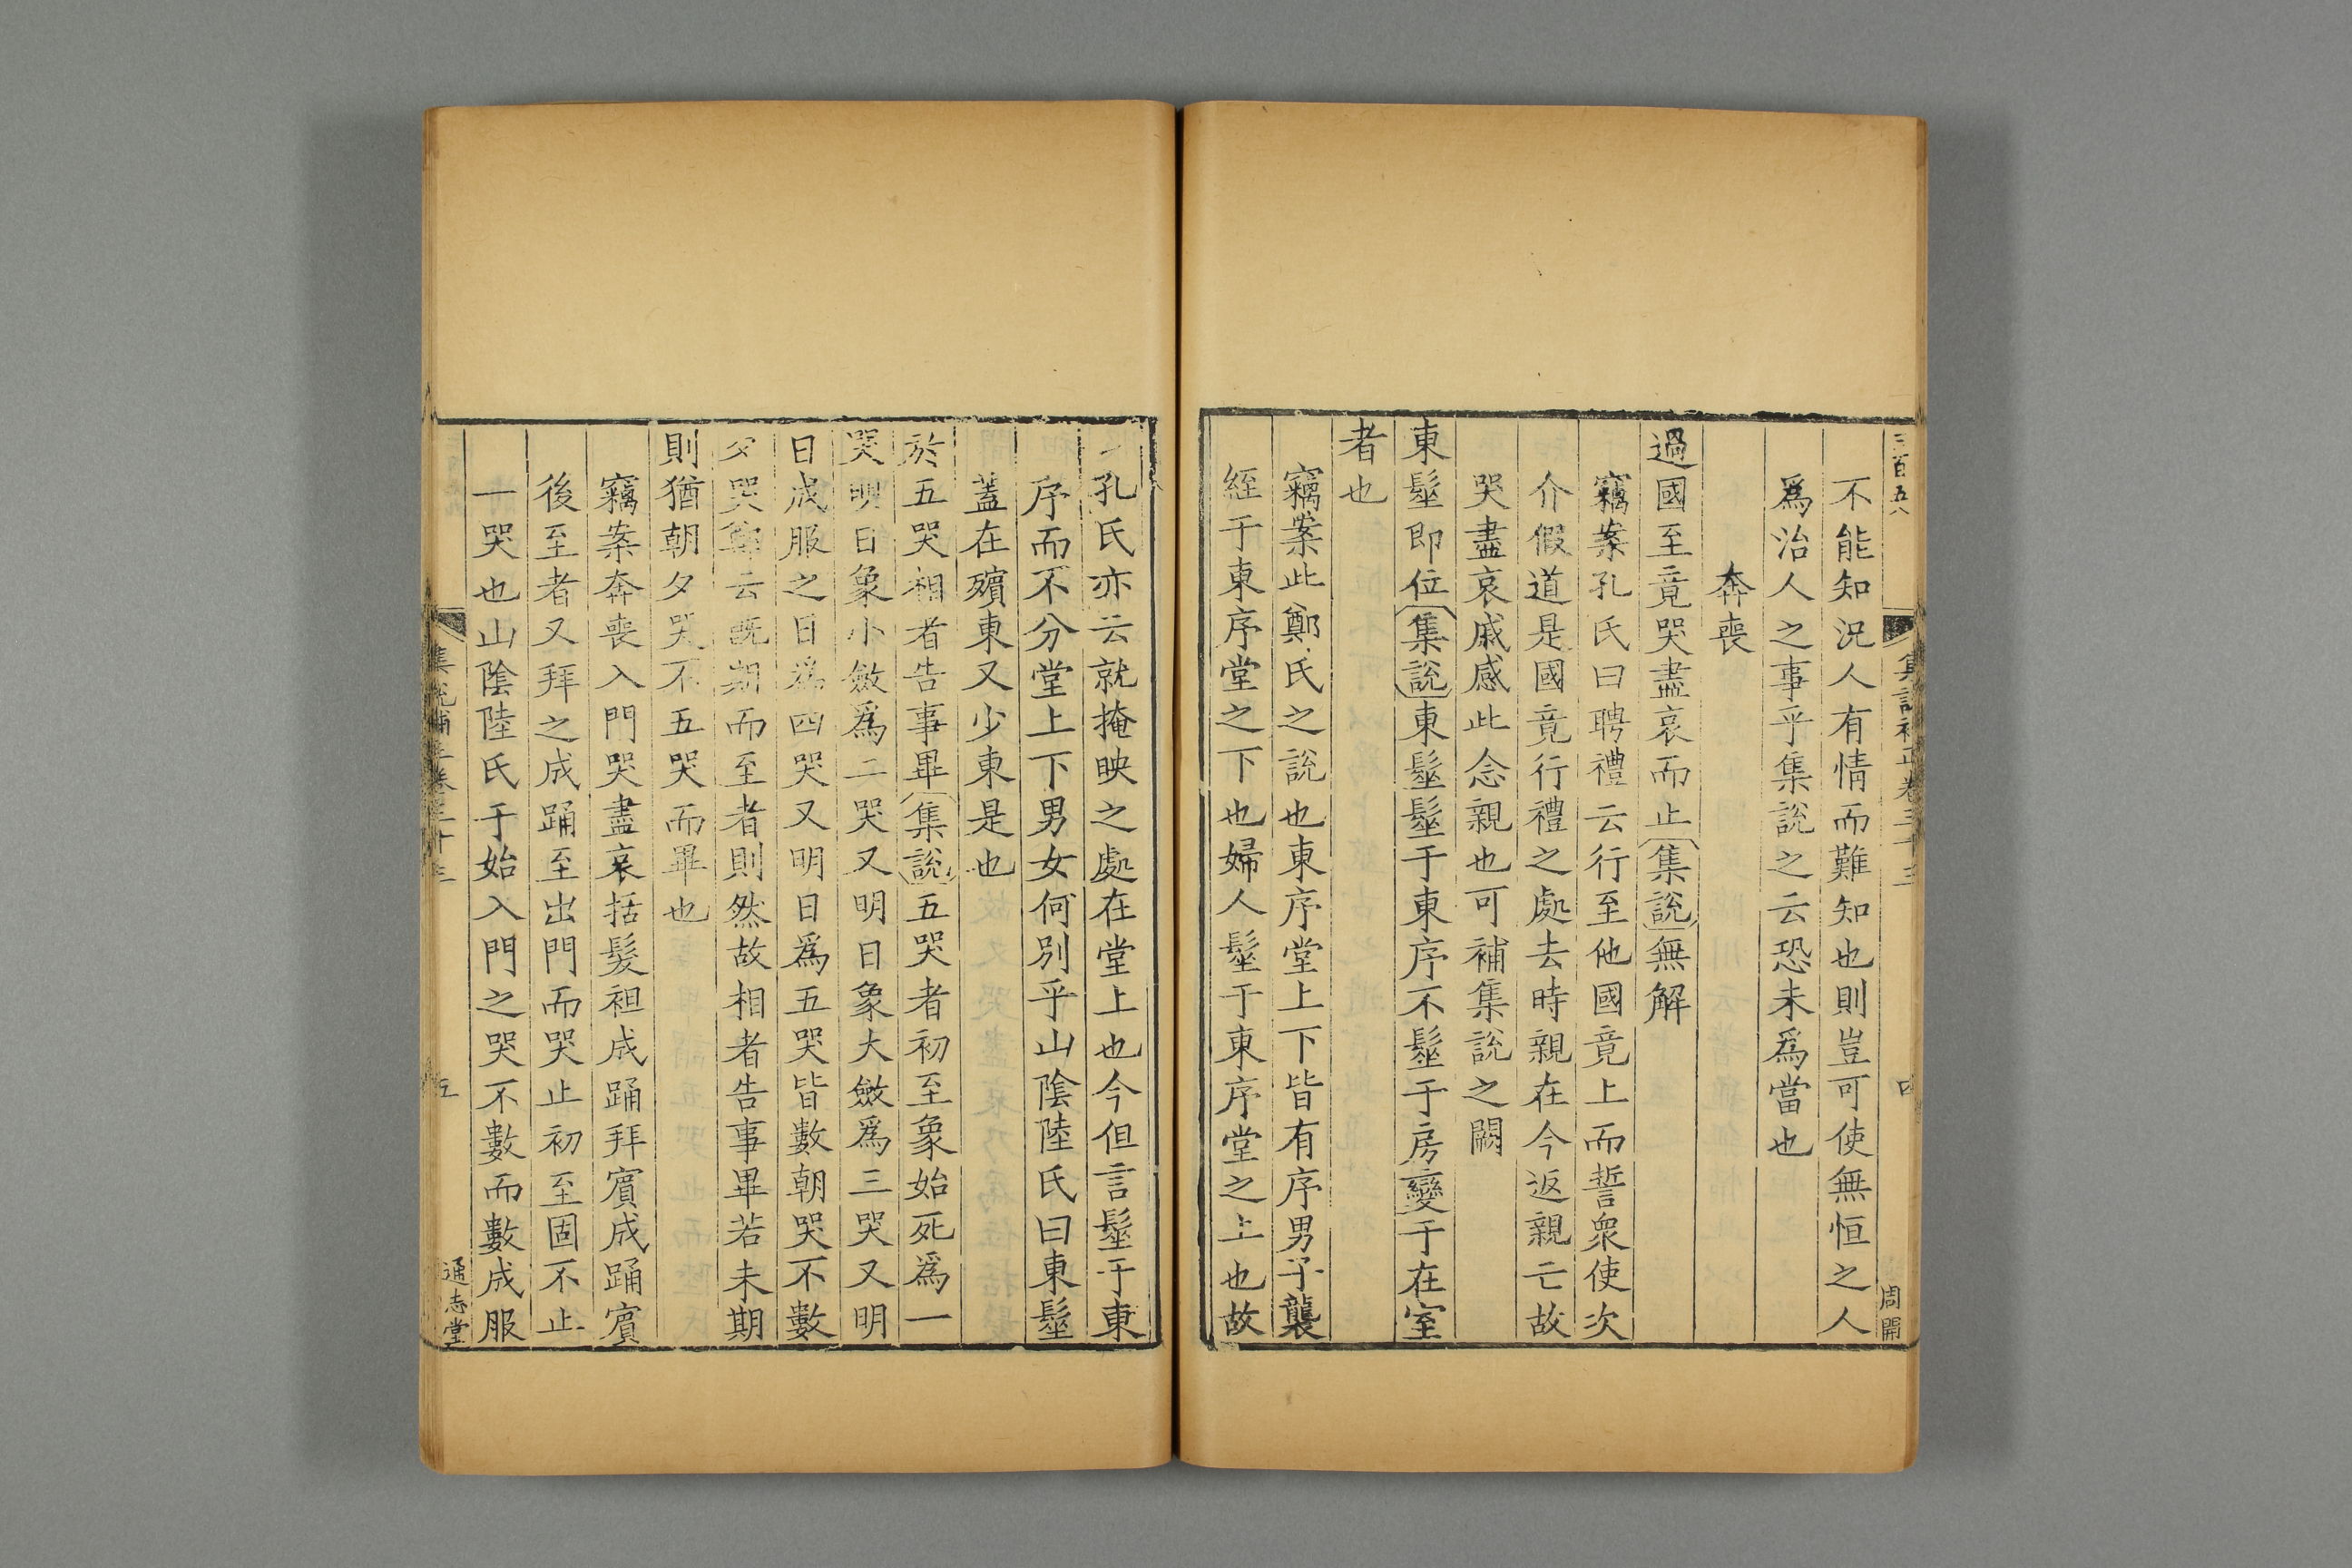 三百五八
集說補正卷三十三
四
周開
不能知況人有情而難知也則豈可使無恒之人
爲治人之事乎集說之云恐未爲當也
奔喪
過國至竟哭盡哀而止集說無解
竊案孔氏曰聘禮云行至他國竟上而誓衆使次
介假道是國竟行禮之處去時親在今返親亡故
哭盡哀戚感此念親也可補集說之闕
東髽即位集說東髽髽于東序不髽于房變于在室
者也
竊案此鄭氏之說也東序堂上下皆有序男子襲
絰于東序堂之下也婦人髽于東序堂之上也故
孔氏亦云就掩映之處在堂上也今但言髽于東
序而不分堂上下男女何別乎山陰陸氏曰東髽
蓋在殯東又少東是也
於五哭相者告事畢集說五哭者初至象始死爲一
哭明日象小斂爲二哭又明日象大斂爲三哭又明
日成服之日爲四哭又明日爲五哭皆數朝哭不數
夕哭鄭云旣期而至者則然故相者告事畢若未期
則猶朝夕哭不五哭而畢也
竊案奔喪入門哭盡哀括髮袒成踊拜賓成踊賓
後至者又拜之成踊至出門而哭止初至固不止
一哭也山陰陸氏于始入門之哭不數而數成服
集說補正卷三十三
五
通志堂